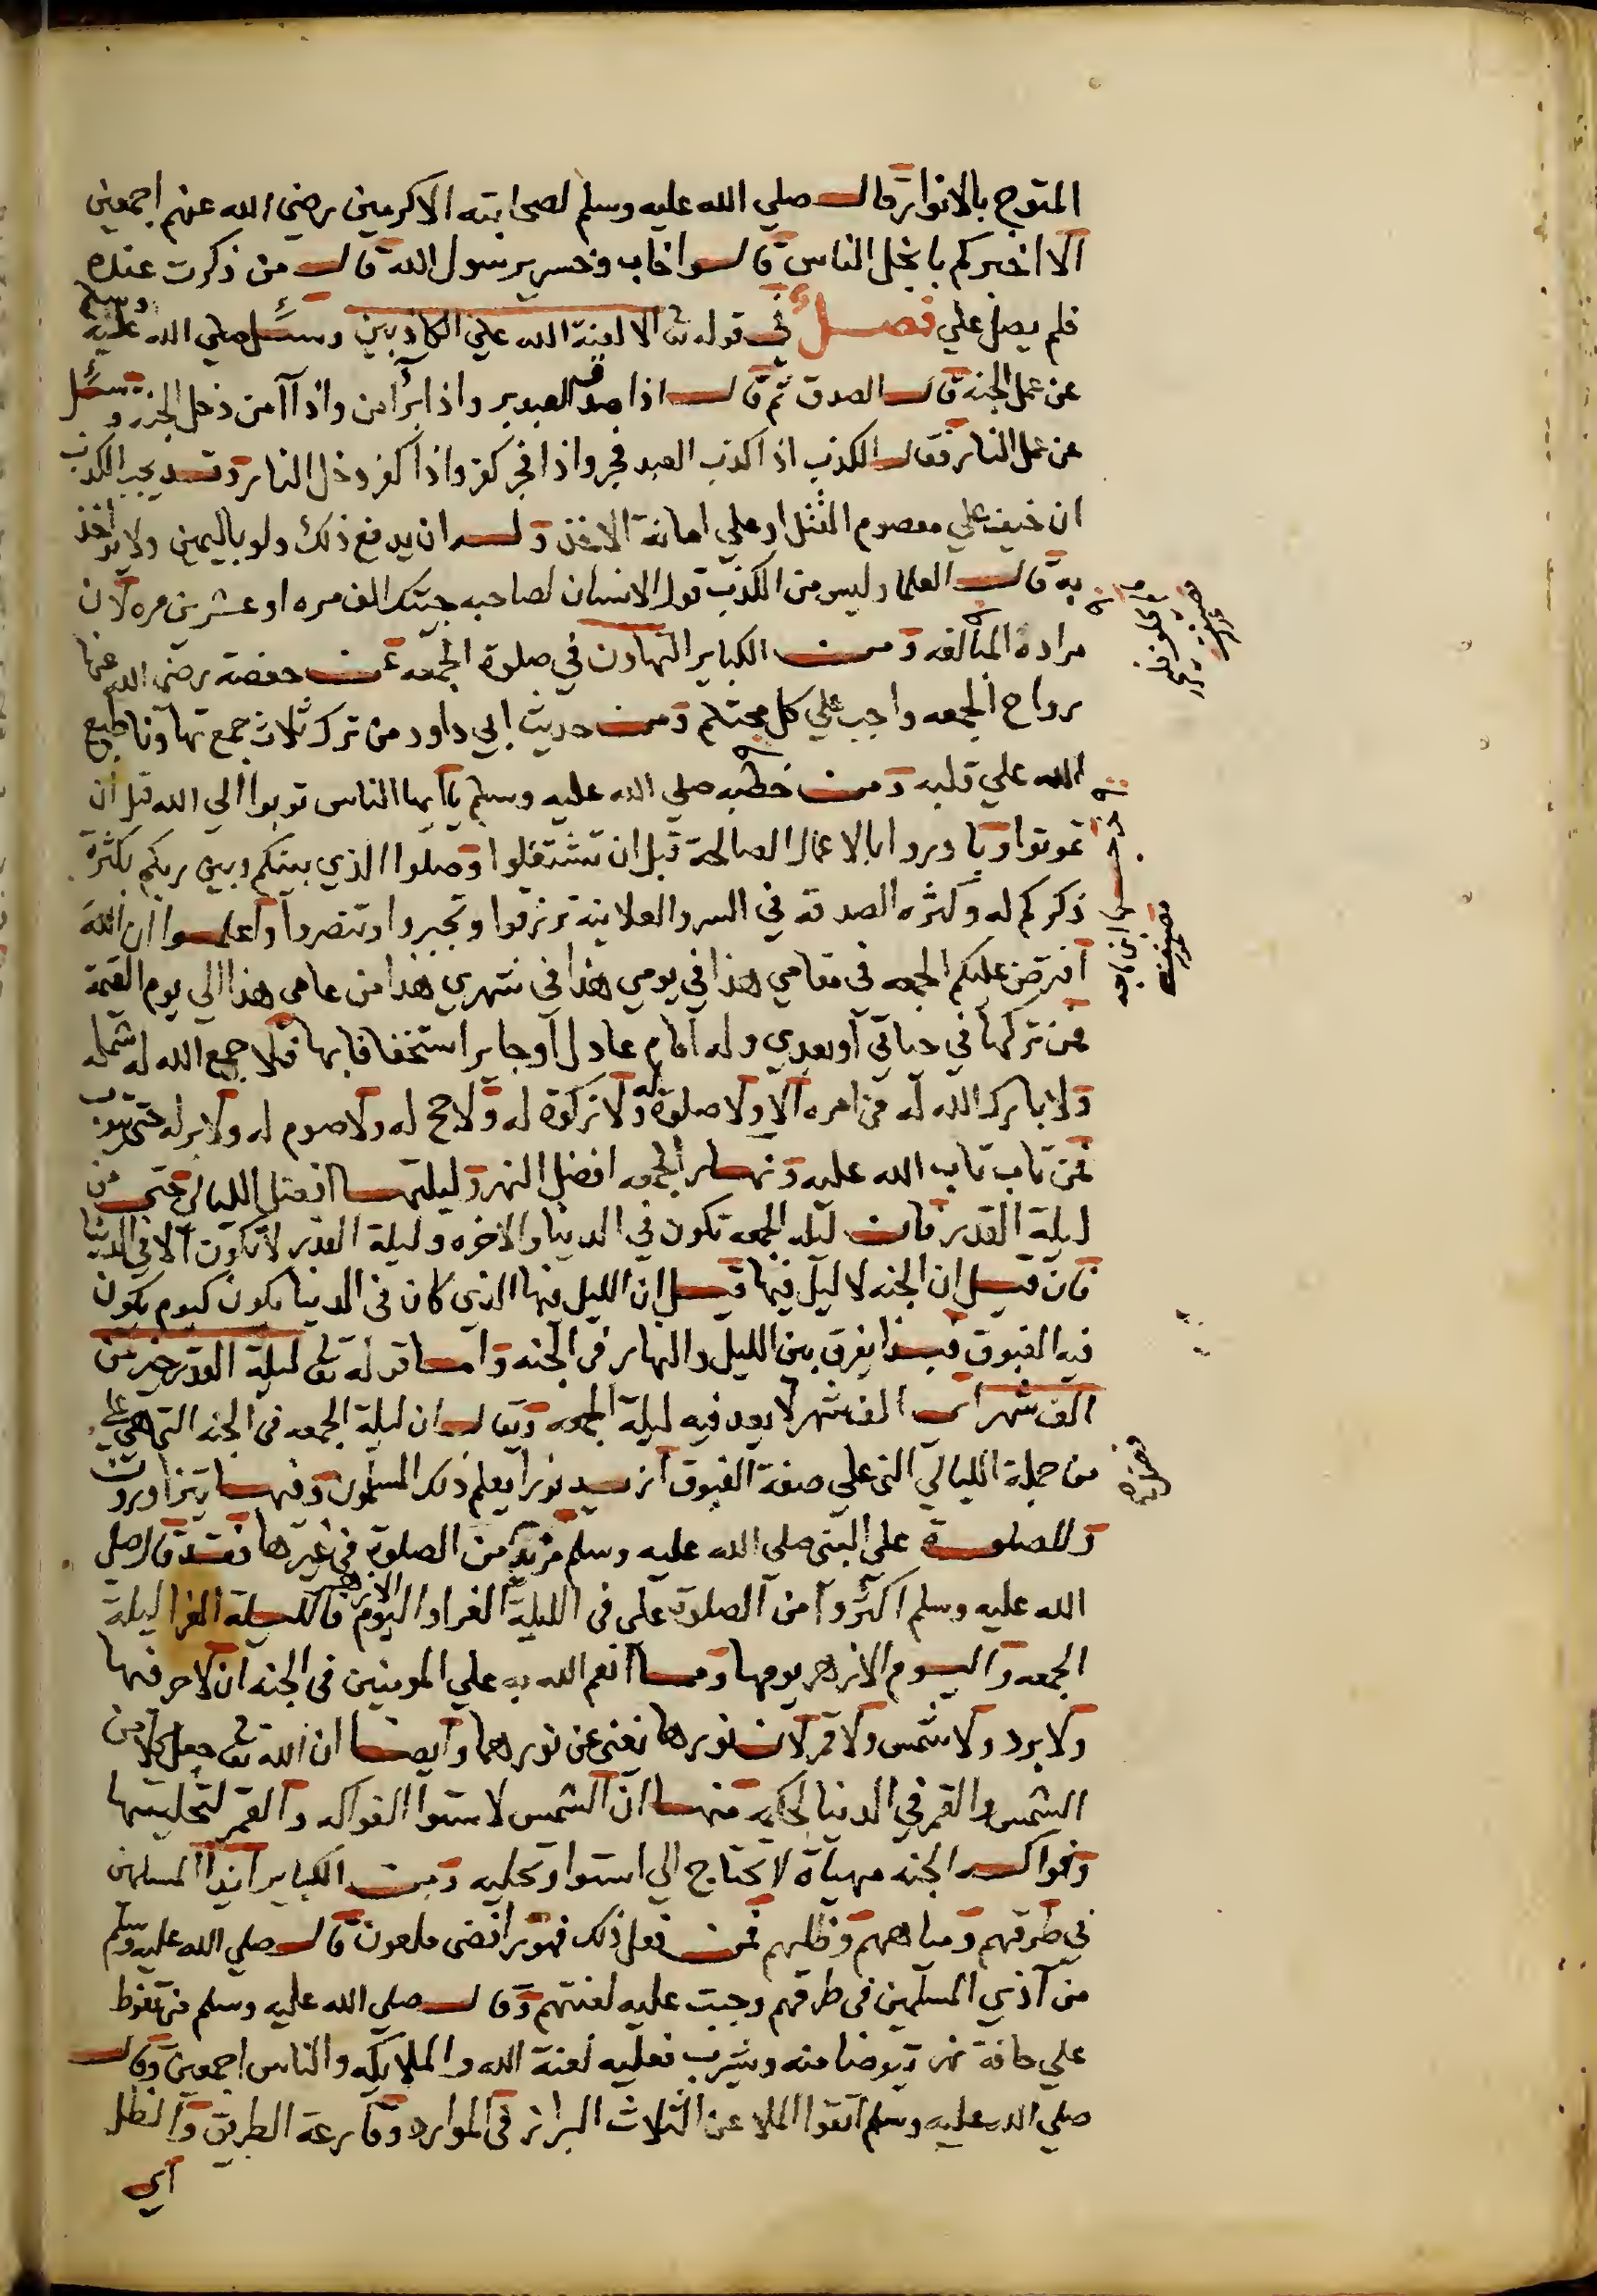 المتوج بالانوار قال صلي الله عليه وسلم لصحابته الاكرمين رضي الله عنهم اجمعين
الا اخبركم بابخل الناس قالوا خاب وخسر يرسول الله قال من ذكرت عنده
فلم يصل علي فصل في قوله تع الا لعنة الله علي الكاذبين وسئل صلي الله عليه وسلم
عن عمل الجنه قال الصدق ثم قال اذا صدق العبد بر واذا بر آمن واذا آمن دخل الجنه وسئل
عن عمل النار فقال الكذب اذا كذب العبد فجر واذا فجر كفر واذا كفر دخل النار وقد يجب الكذب
ان خيف علي معصوم القتل او علي امانة الاخذ وله ان يدفع ذلك ولو باليمين ولا يواخذ
به قال العلما وليس من الكذب قول الانسان لصاحبه جيتك الف مره او عشرين مره لان
مراده المبالغه ومن الكباير التهاون في صلوة الجمعه عن حفصة رضي الله عنها
رواح الجمعه واجب علي كل محتلم ومن حديث ابي داود من ترك ثلاث جمع تهاونا طبع
الله علي قلبه ومن خطبه صلي الله عليه وسلم يا ايها الناس توبوا الي الله قبل ان
تموتوا وبادروا بالاعمال الصالحة قبل ان تشتغلوا وصلوا الذي بينكم وبين ربكم بكثرة
ذكركم له وكثره الصدقه في السر والعلانية ترزقوا وتجبروا وتنصروا واعلموا ان الله
افترض عليكم الجمعه في مقامي هذا في يومي هذا في شهري هذا من عامي هذا الي يوم القيمة
فمن تركها في حياتي او بعدي وله امام عادل او جاير استخفافا بها فلا جمع الله له شمله
ولا بارك الله له في امره الا ولا صلوة له ولا زكوة له ولا حج له ولا صوم له ولا بر له حتي يتوب
فمن تاب تاب الله عليه ونهار الجمعه افضل النهر وليلتها افضل الليالي حتي من
ليلة القدر فان ليلة الجمعه تكون في الدنيا والاخره وليلة القدر لا تكون الا في الدنيا
فان قيل ان الجنه لا ليل فيها قيل ان الليل فيها الذي كان في الدنيا يكون كيوم يكون
فيه الغبوق فبهذا يفرق بين الليل والنهار في الجنه واما قوله تع ليلة القدر خير من
الف شهر اي الف شهر لا يعد فيه ليلة الجمعه ويقال ان ليلة الجمعه في الجنه التي هي علي
من جملة الليالي التي علي صفة الغبوق ازيد نورا يعلم ذلك المسلمون وفيها يتزاورون
وللصلوة علي النبي صلي الله عليه وسلم مزية من الصلوة في غيرها فقد قال صل
الله عليه وسلم اكثروا من الصلوة علي في الليلة الغرا واليوم الازهر فالليلة الغرا ليلة
الجمعه واليوم الازهر يومها ومما انعم الله به علي المومنين في الجنه ان لا حر فيها
ولا برد ولا شمس ولا قمر لان نورها يغني عن نورهما وايضا ان الله تع جعل كلا من
الشمس والقمر في الدنيا لحكمة منها ان الشمس لاستوا الفواكه والقمر لتحليتها
وفواكه الجنه مهياة لا تحتاج الي استوا وتحليه ومن الكباير ايذا المسلمين
في طرقهم ومياههم وظلهم فمن فعل ذلك فهو رافضي ملعون قال صلي الله عليه وسلم
من آذي المسلمين في طرقهم وجبت عليه لعنتهم وقال صلي الله عليه وسلم من تغوط
علي حافة نهر يتوضا منه ويشرب فعليه لعنة الله والملايكه والناس اجمعين وقال
صلي الله عليه وسلم اتقوا الملاعن الثلاث البراز في الموارد وقارعة الطريق والظل
اي